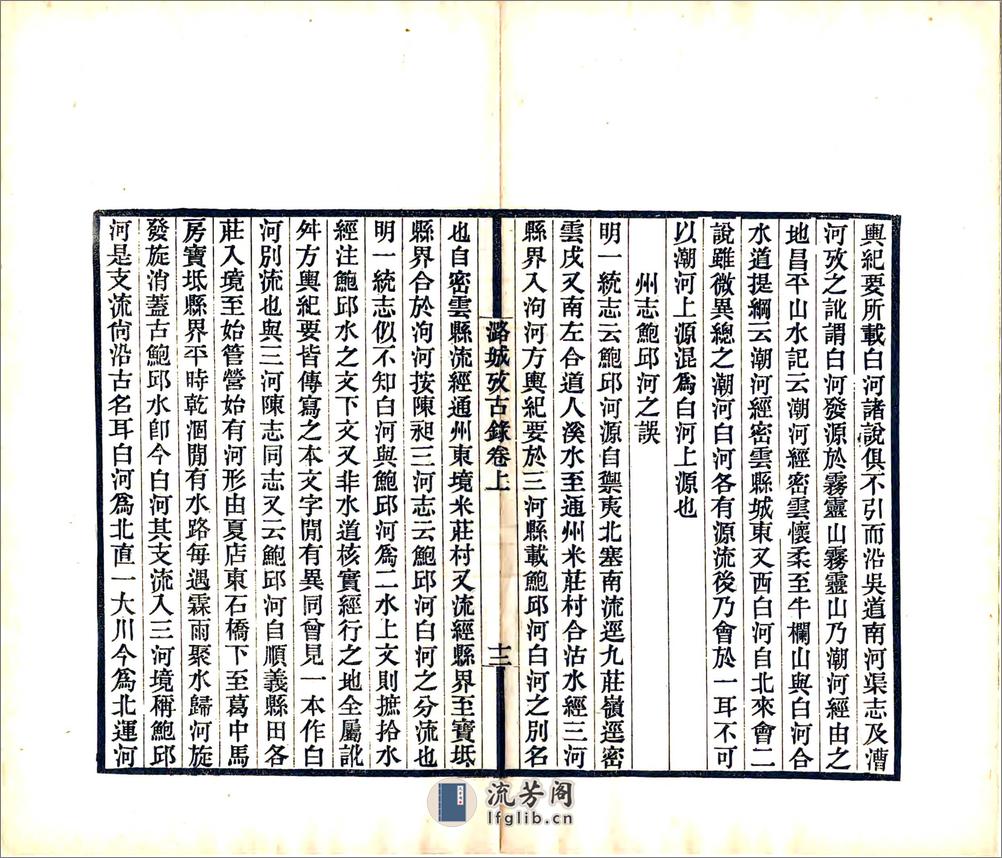 輿紀要所載白河諸說俱不引而沿吳道南河渠志及漕
河攷之訛謂白河發源於霧靈山霧靈山乃潮河經由之
地昌平山水記云潮河經密雲懷柔至牛欄山與白河合
水道提綱云潮河經密雲縣城東又西白河自北來會二
說雖微異總之潮河白河各有源流後乃會於一耳不可
以潮河上源混爲白河上源也
州志鮑邱河之誤
明一統志云鮑邱河源自禦夷北塞南流逕九莊嶺逕密
雲戌又南左合道人溪水至通州米莊村合沽水經三河
縣界入泃河方輿紀要於三河縣載鮑邱河白河之別名
潞城攷古錄卷上
十二
也自密雲縣流經通州東境米莊村又流經縣界至寶坻
縣界合於泃河按陳昶三河志云鮑邱河白河之分流也
明一統志似不知白河與鮑邱河爲二水上文則摭拾水
經注鮑邱水之文下文又非水道核實經行之地全屬訛
舛方輿紀要皆傳寫之本文字閒有異同曾見一本作白
河別流也與三河陳志同志又云鮑邱河自順義縣田各
莊入境至始管營始有河形由夏店東石橋下至葛中馬
房寶坻縣界平時乾涸閒有水路每遇霖雨聚水歸河旋
發旋消蓋古鮑邱水卽今白河其支流入三河境稱鮑邱
河是支流尙沿古名耳白河爲北直一大川今爲北運河
流芳阁
lfglib.cn